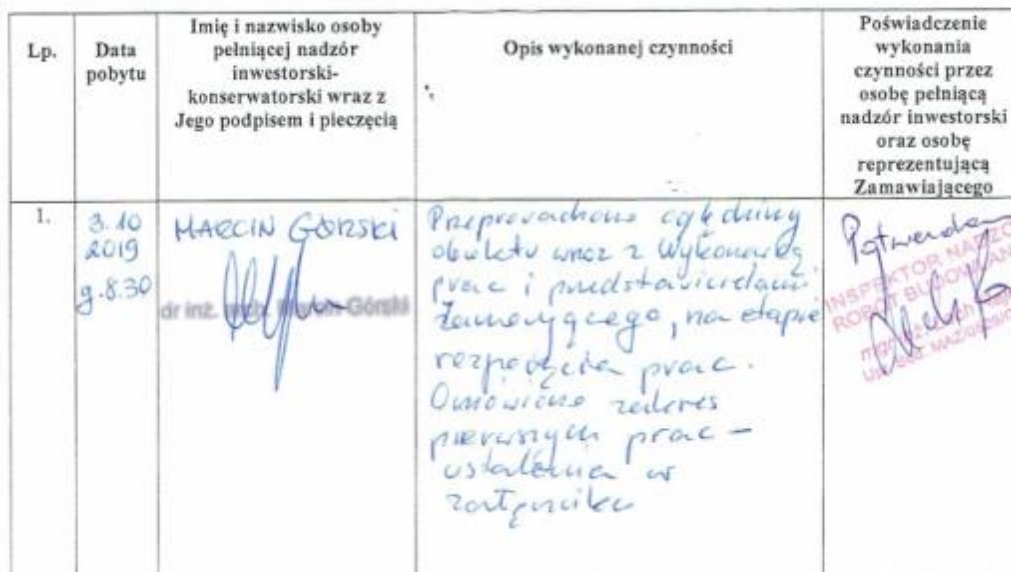 Lp.
Data
pobytu
Imię i nazwisko osoby
pełniącej nadzór
inwestorski-
konserwatorski wraz z
Jego podpisem i pieczęcią
Opis wykonanej czynności
Poświadczenie
wykonania
czynności przez
osobę pełniącą
nadzór inwestorski
oraz osobę
reprezentującą
Zamawiającego
1.
3.10
2019
g.8.30
MARCIN GÓRSKI
dr inż. arch. Marcin Górski
Przeprowadzono oględziny
obiektu wraz z Wykonawcą
prac i przedstawicielami
Zamawiającego, na etapie
rozpoczęcia prac.
Omówiono zakres
pierwszych prac –
ustalenia w
załączniku
Potwierdzam
INSPEKTOR NADZO
ROBÓT BUDOWLAN